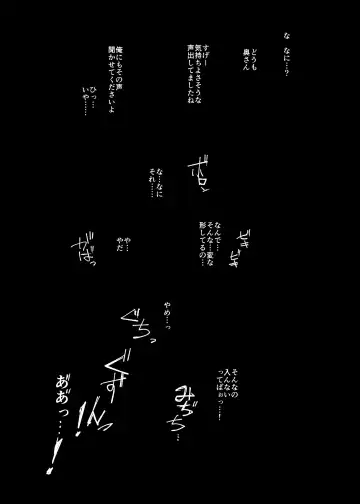 な なに…？
どうも
奥さん
すげー
気持ちよさそうな
声出してましたね
俺にもその声
聞かせてくださいよ
ひっ…
いや……
ボロン
な…なに
それ……
なんで…
そんな…変な
形してるの…
ビキ
ビキ
や…
やだ
がばっ
やめ…っ
ぐちっ
そんなの
入んない
ってばぉっ…！
みぢぢ…
ぐずんっ！
あ゛あ゛っ…！